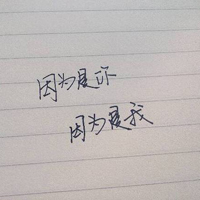 因为是你
因为是我